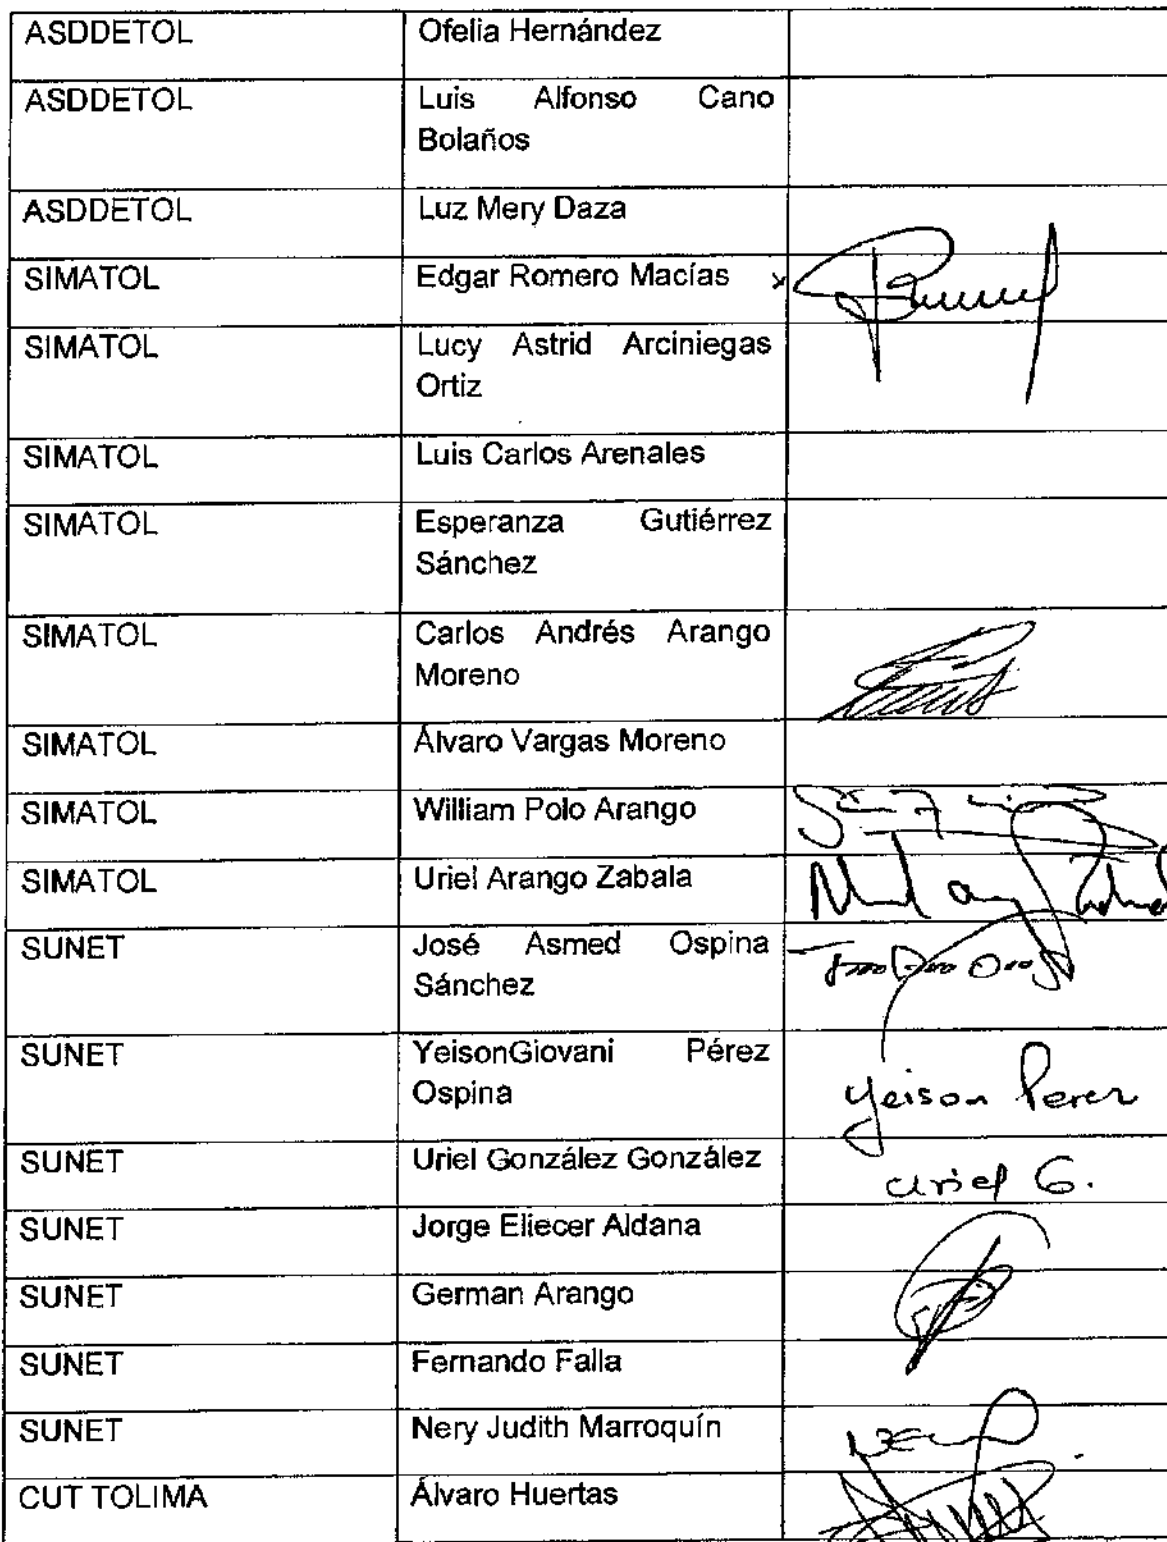 ASDDETOL Ofelia Hernández
ASDDETOL Luis Alfonso Cano
Bolaños
ASDDETOL Luz Mery Daza
SIMATOL Edgar Romero Macías x
SIMATOL Lucy Astrid Arciniegas
Ortiz
SIMATOL Luis Carlos Arenales
SIMATOL Esperanza Gutiérrez
Sánchez
SIMATOL Carlos Andrés Arango
Moreno
SIMATOL Álvaro Vargas Moreno
SIMATOL William Polo Arango
SIMATOL Uriel Arango Zabala
SUNET José Asmed Ospina
Sánchez
SUNET YeisonGiovani Pérez
Ospina Yeison Perez
SUNET Uriel González González
Uriel G.
SUNET Jorge Eliecer Aldana
SUNET German Arango
SUNET Fernando Falla
SUNET Nery Judith Marroquín
CUT TOLIMA Álvaro Huertas